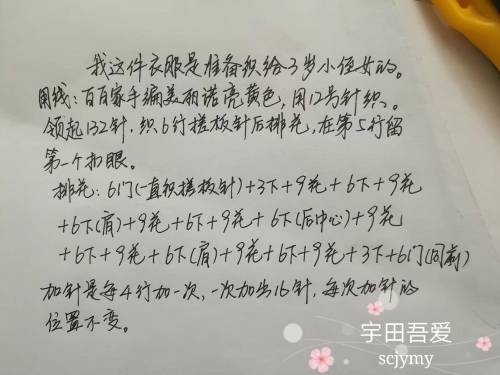 我这件衣服是准备织给3岁小侄女的。
用线：百百家手编美丽诺亮黄色，用12号针织。
领起132针，织6行搓板针后排花，在第5行留
第一个扣眼。
排花：6门(一直织搓板针)+3下+9花+6下+9花
+6下(肩)+9花+6下+9花+6下(后中心)+9花
+6下+9花+6下(肩)+9花+6下+9花+3下+6门(同前)
加针是每4行加一次，一次加出16针，每次加针的
位置不变。
宇田吾爱
scjymy